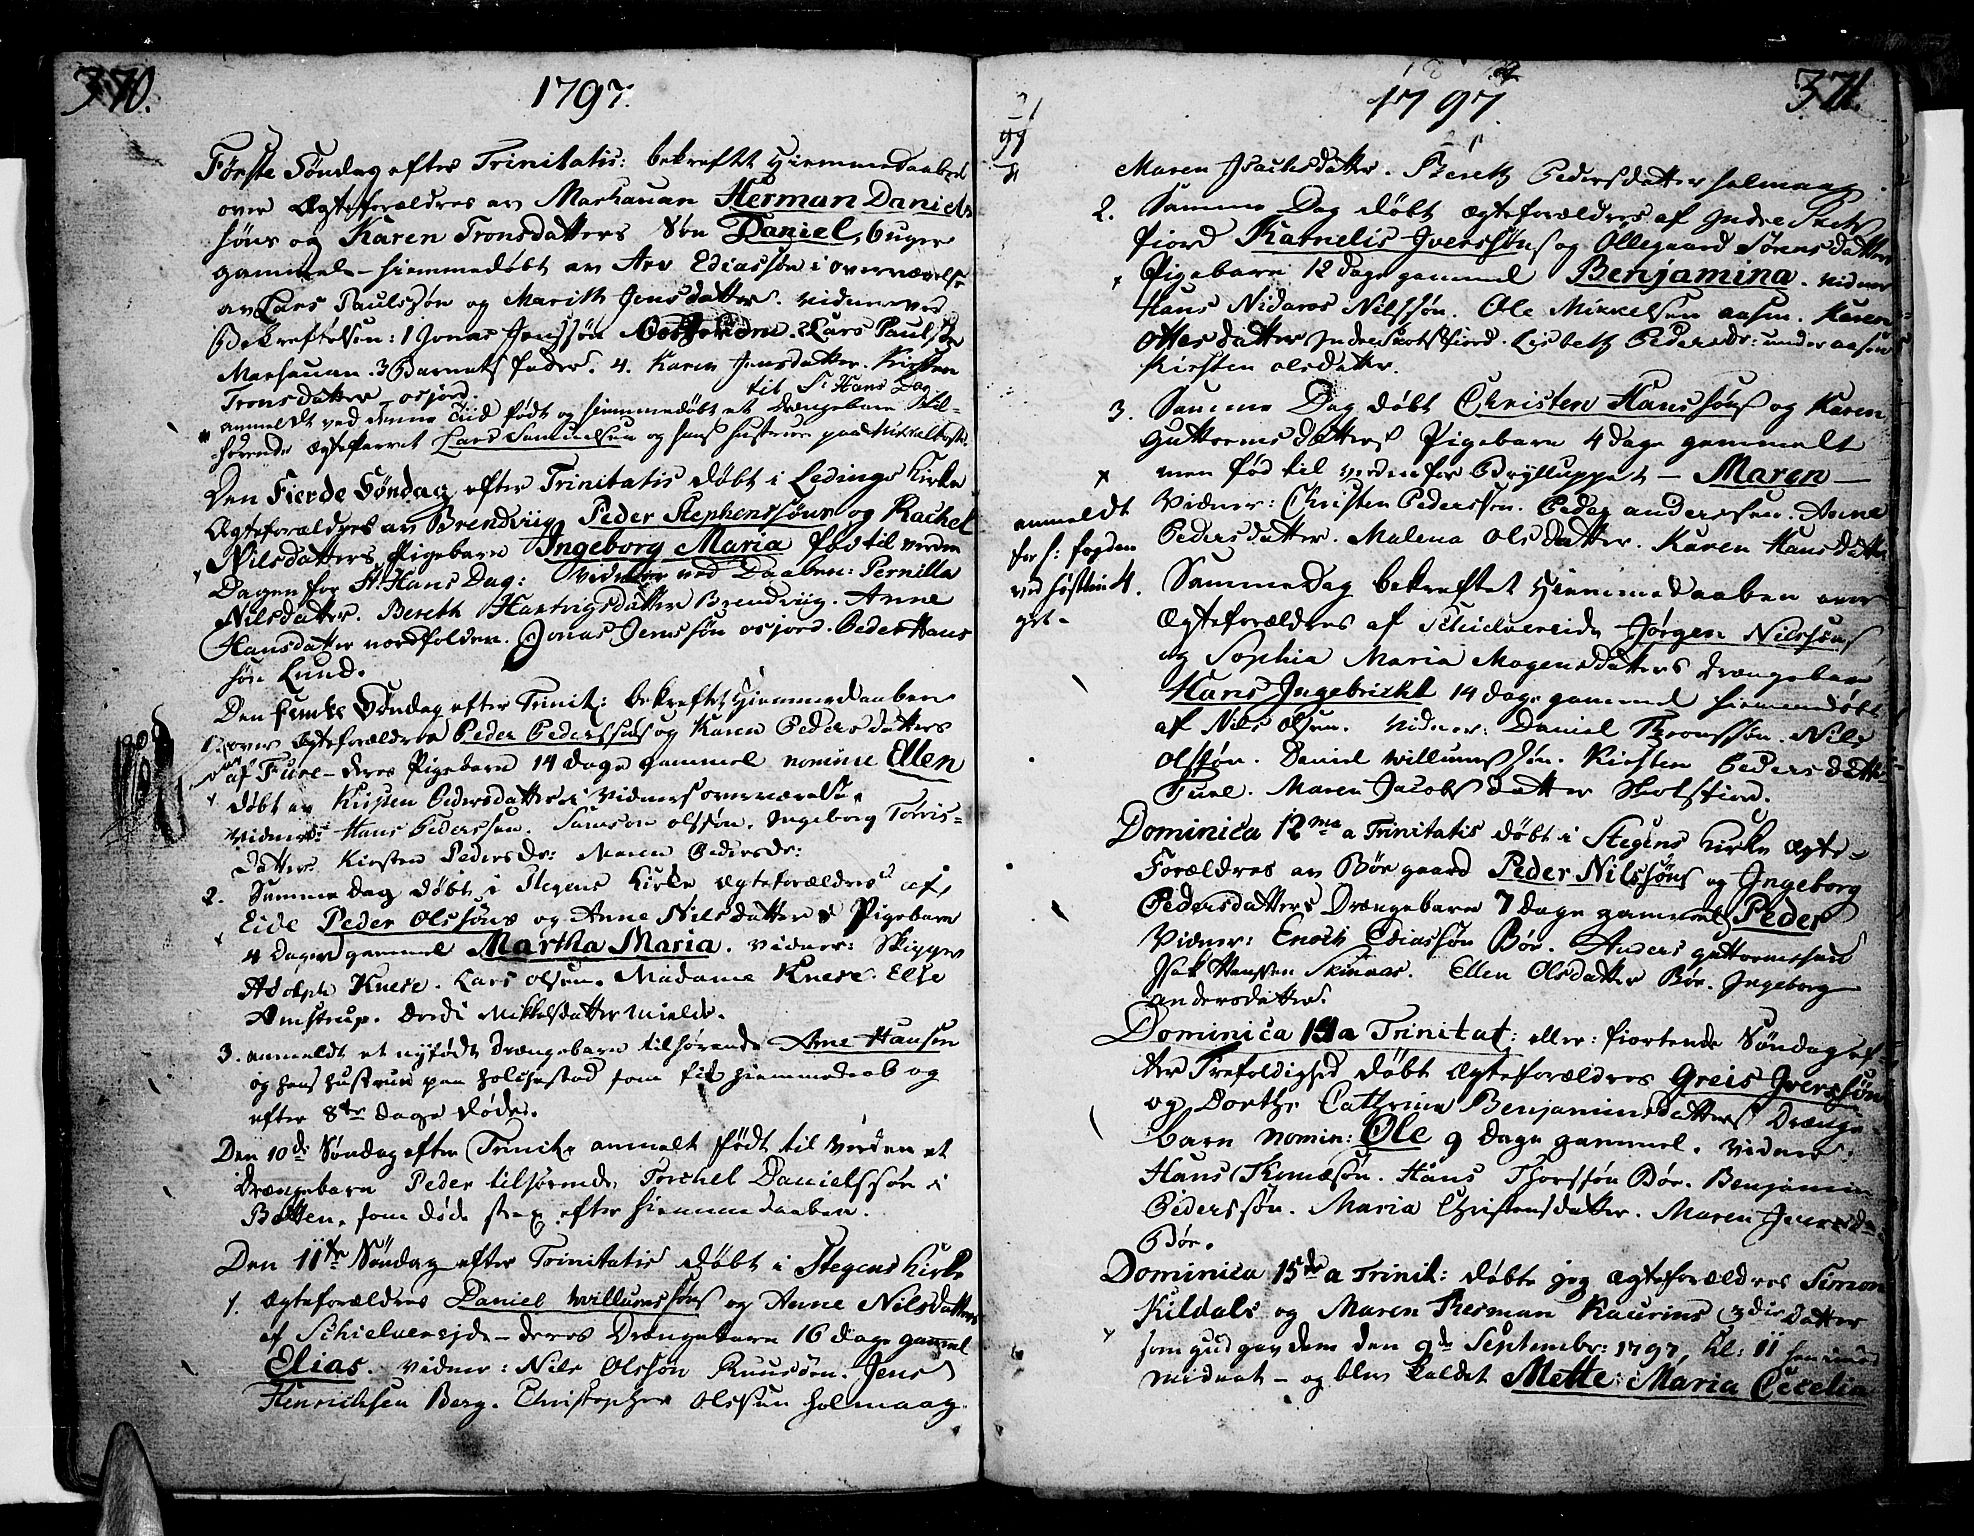 370.
1797.
Første Søndag efter Trinitatis: bekreftet Hiemmedaaben
over Ægteforældres av Marhauan Herman Daniels
søns og Karen Tronsdatters Søn Daniel, 6 uger
gammel – hiemmedøbt av Arv Ediassøn i overværelse
av Lars Paulssøn og Marith Jensdatter. Vidner ved
Bekreftelsen: 1 Jonas Jenssøn 2 Lars Paulssøn
Marhauan. 3 Barnets fader. 4. Karen Jensdatter. Kirsten
Tronsdatter osjord.
til St Hans Dag
anmeldt ved denne Tiid født og hiemmedøbt et Drængebarn til-
hørende ægteparret Lars Samuelsen og hans hustrue paa
Den Fierde Søndag efter Trinitatis døbt i Ledings Kirke
Ægteforældres av Brendviig Peder Stephenssøns og Rachel
Nilsdatters Pigebarn Ingeborg Maria fød til verden
Dagen for St. Hans Dag: Vidner ved Daaben: Pernilla
Nilsdatter. Bereth Hartvigsdatter Brendviig. Anne
Hansdatter nordfolden. Jonas Jenssøn osjord. Peder Hans
søn Lund.
Den femte Søndag efter Trinit: bekreftet Hiemmedaaben
1. over Ægteforældres Peder Pederssøns og Karen Pedersdatters
af Fure – deres Pigebarn 14 dage gammel nomine Ellen
døbt av Kirsten Pedersdatter i Vidners overværelse.
Vidner: Hans Pederssen. Samson olssøn. Ingeborg Torris-
datter. Kirsten Pedersdr: Maren Pedersdr:
2. Samme Dag døbt i Stegens Kirke Ægteforældres af
Eide Peder Olssøns og Anne Nilsdatters Pigebarn
4 Dage gammel Martha Maria. Vidner: Skipper
Adolph Knese. Lars Olsen. Madame Knese. Else
Amstrup. Dordi Mikkelsdatter Mielde.
3. anmeldt et nyfødt Drængebarn tilhørende Arne Hansen
og hans hustrue paa Holchestad som fik hiemmedaab og
efter 8te Dage døde.
Den 10de Søndag efter Trinit. anmelt født til Verden et
Drængebarn Peder tilhørende Torchel Danielssøn i
Botten, som døde strax efter hiemmedaaben.
Den 11te Søndag efter Trinitatis døbt i Stegens Kirke
1. Ægteforældres Daniel Willumssøns og Anne Nilsdatters
af Schielvereide – deres Drængebarn 16 dage gammel
Elias. Vidner: Nils Olssøn Jens
Henrichsen Berg. Christopher Olssen holmaag.
371.
1797.
Maren Isachsdatter. Bereth Pedersdatter holmaag.
2. Samme Dag døbt ægteforældres af Indre
fiord Kornelis Iverssøns og Ollegaard Sørensdatters
Pigebarn 12 dage gammel Benjamina. Vidner
Hans Nidaros Nilssøn. Ole Mikkelsen aasen. Karen
Ottesdatter Inderskotsfiord. Lisbeth Pedersdr: under aasen
Kirsten olsdatter.
3. Samme Dag døbt Christen Hanssøns og Karen
Guttormsdatters Pigebarn 4 dage gammelt
men fød til verden for Brylluppet – Maren –
Vidner: Christen Pederssøn. Peder anderssen. Anne
Pedersdatter. Malena Olsdatter. Karen Hansdatter
anmeldt
for h: fogden
ved høsttin
get –
4. Samme Dag bekreftet Hiemmedaaben over
Ægteforældres af Schielvereide Jørgen Nilssøns
og Sophia Maria Mogensdatters Drængebarn
Hans Ingebricht 14 dage gammel hiemmedøbt
af Nils Olsen. Vidner: Daniel Thronssøn. Nils
Olssøn. Daniel Willumssøn. Kirsten Pedersdatter
Fure. Maren Jacobsdatter Skotsfiord.
Dominica 12ma a Trinitatis døbt i Stegens Kirke Ægte-
Forældres av Bør gaard Peder Nilssøns og Ingeborg
Pedersdatters Drængebarn 7 dage gammel Peder
Vidner: Enoch Ediassøn Bør. Anders guttormssen
Isak Hanssen Skinnas. Ellen Olsdatter Bør. Ingeborg
andersdatter.
Dominica 14a Trinitat: eller: fiortende Søndag ef-
ter Trefoldighed døbt Ægteforældres Greis Iverssøn
og Dorthe Cathrina Benjaminsdatters Drænge-
barn nomin: Ole 9 dage gammel. Vidner:
Hans Thomæsøn. Hans Thorssøn Bør. Benjamin
Pederssøn. Maria Christensdatter. Maren Iversdr:
Bør.
Dominica 15de a Trinit: døbte jeg Ægteforældres Simon
Kildals og Maren Therman Kaurins 3die datter
som gud gav dem den 9de September: 1797, kl: 11
midnat – og blev kaldet Mette: Maria Cecelia